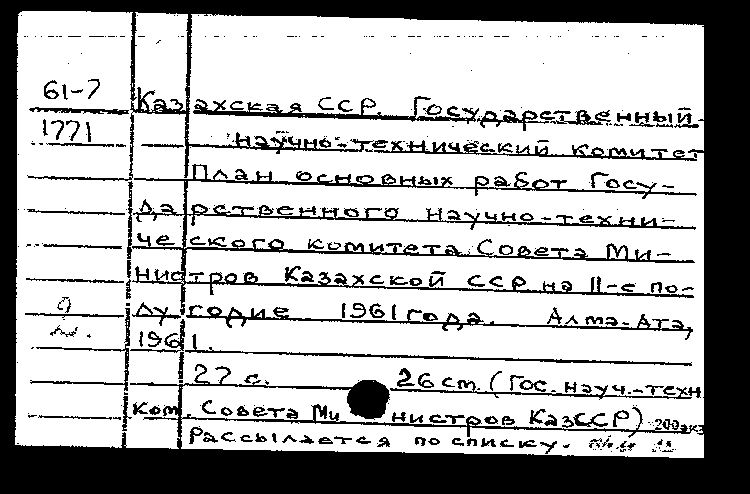 61-7
Казахская ССР. Государственный
1771
научно-технический комитет
План основных работ Госу-
дарственного научно-техни-
ческого комитета Совета Ми-
нистров Казахской ССР на II-е по-
лугодие 1961 года. Алма-Ата,
1961.
27 с. 26 см. (Гос. науч.-техн
ком. Совета Министров КазССР) 200 экз
Рассылается по списку.